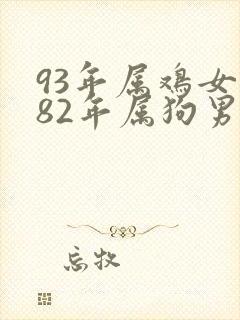 93年属鸡女
82年属狗男
忘牧